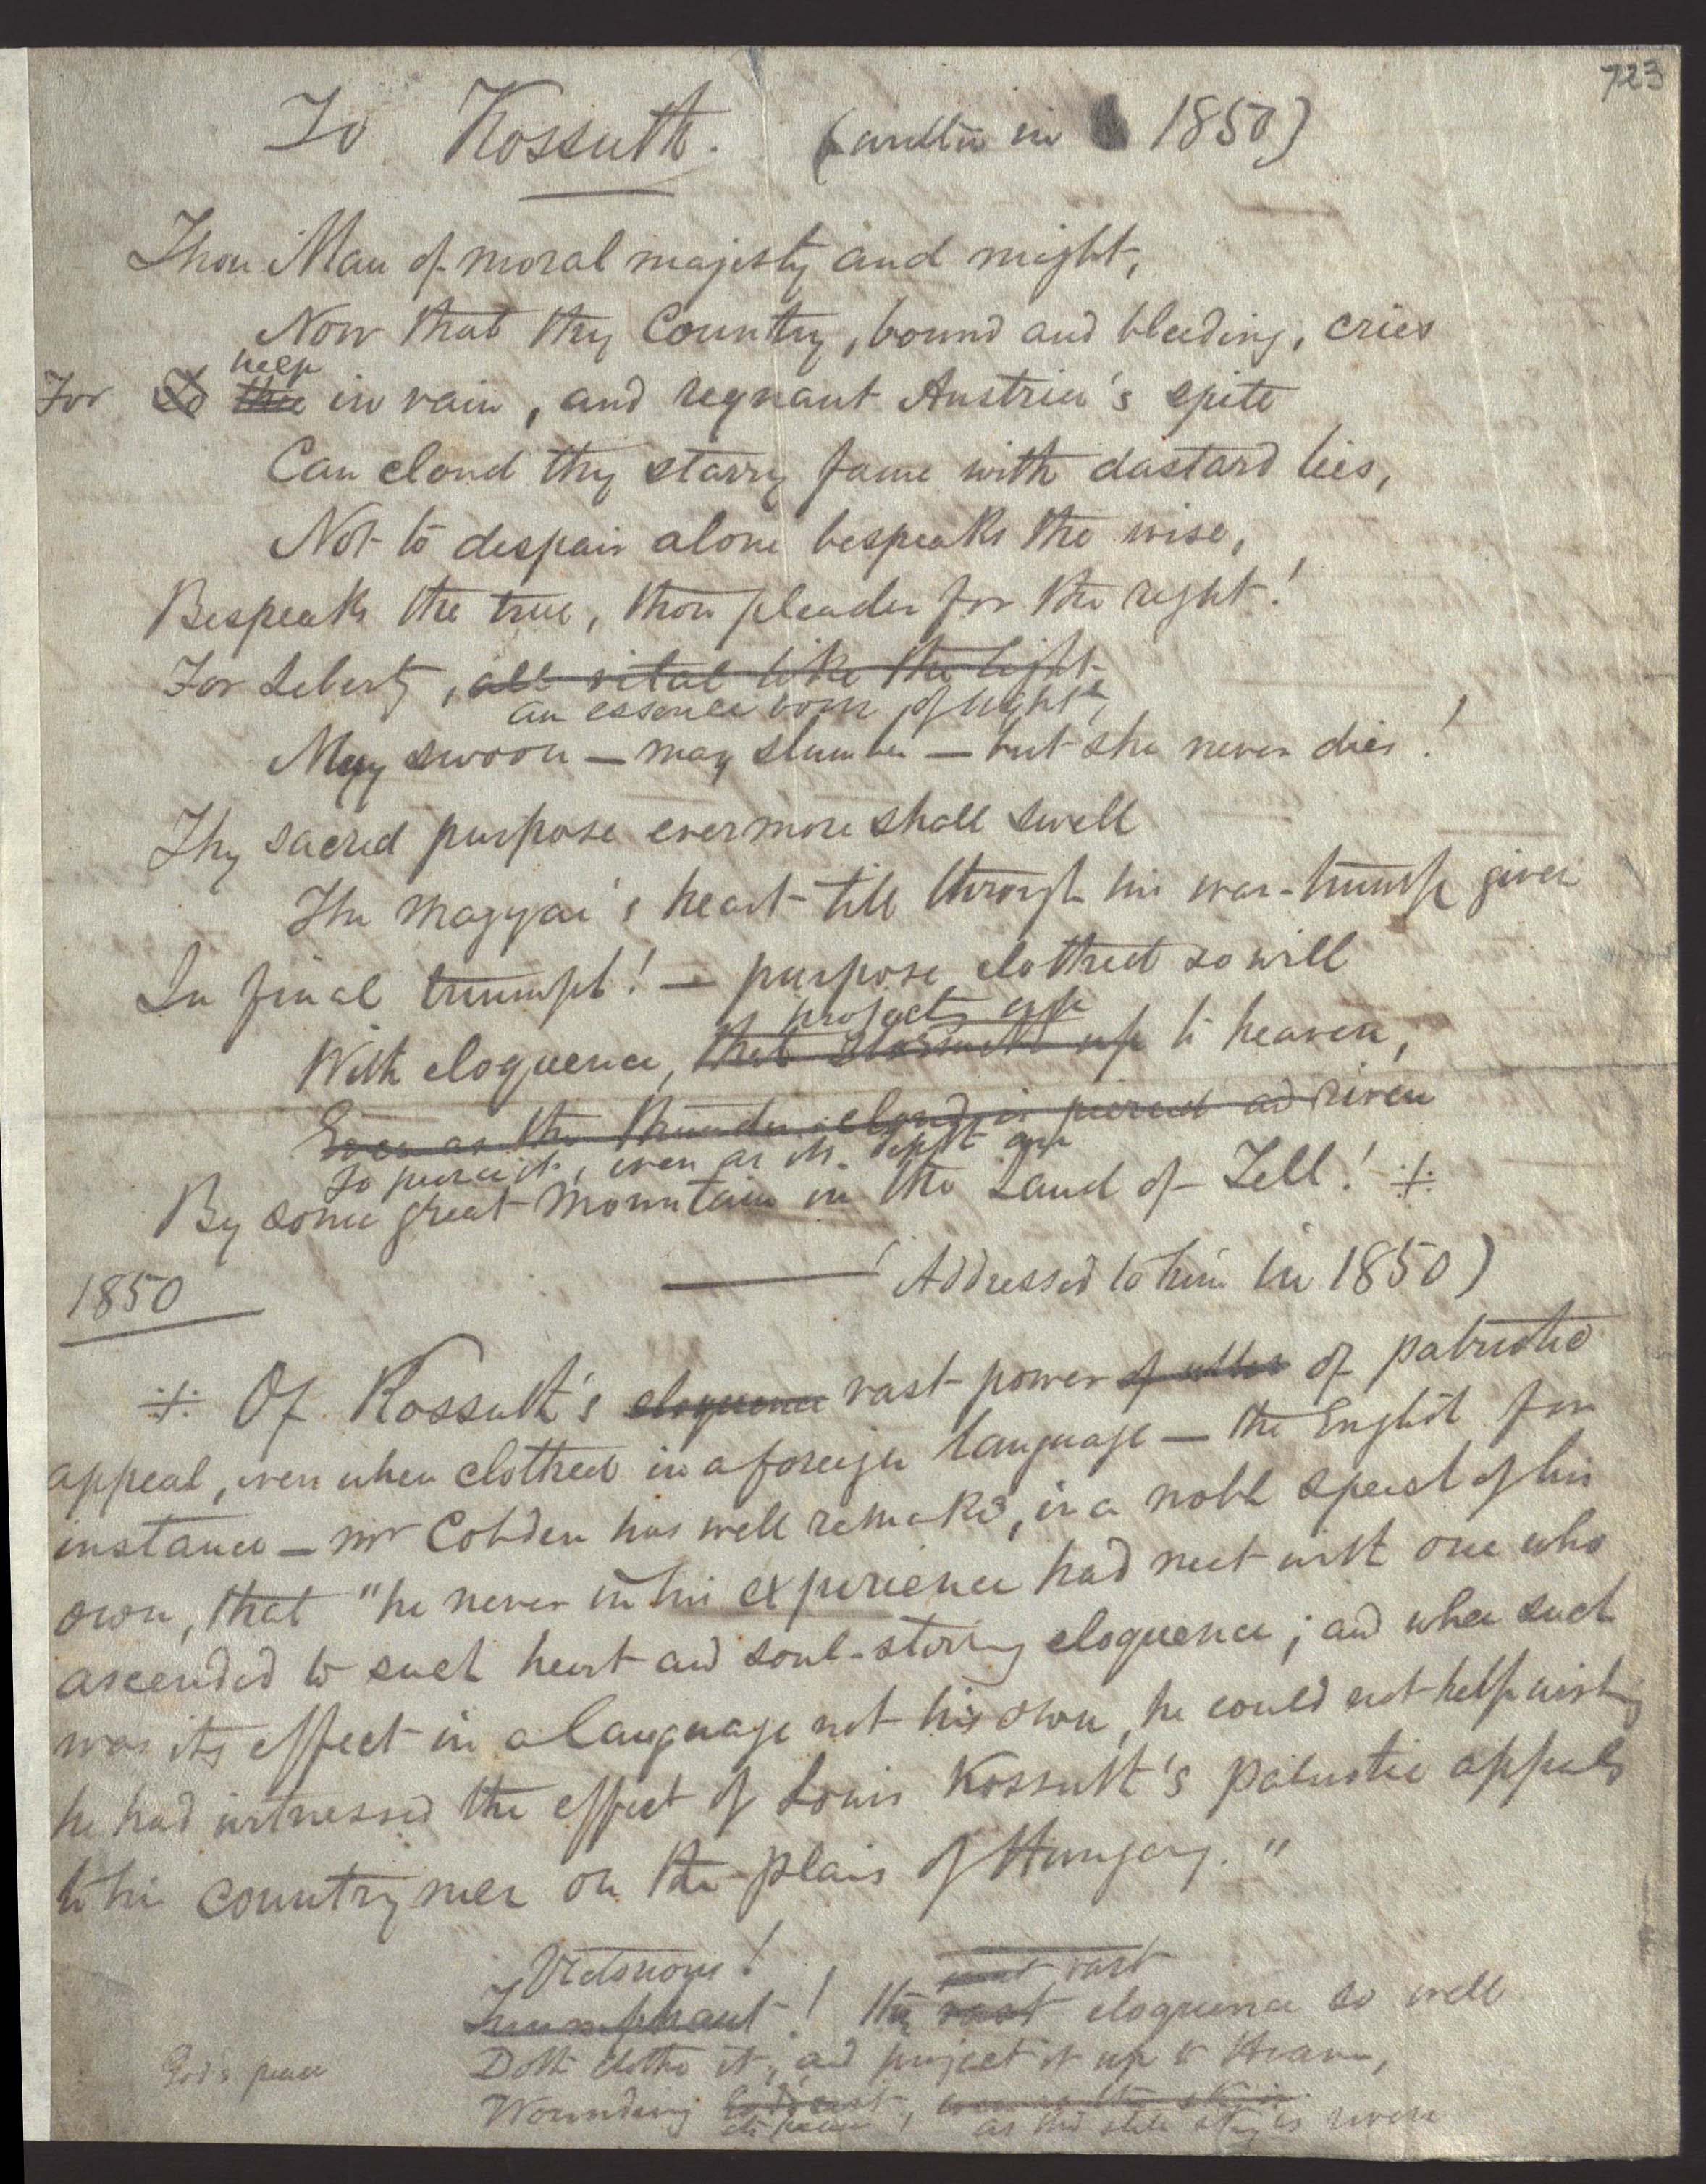 723
To Kossuth. (written in 1850)
Thou Man of moral majesty and might,
Now that thy Country, bound and bleeding, cries
help
For To thee in vain, and regnant Austria's spite
Can cloud thy starry fame with dastard lies,
Not to despair alone bespeaks the wise,
Bespeaks the true, thou pleader for the right!
For Liberty, all vital like the light
an essence born of light,
May swoon — may slumber — but she never dies!
Thy sacred purpose evermore shall swell
The Magyar's heart till through his war-trump given
In final triumph! — purpose clothed so well
projects up
With eloquence, that up to heaven,
Even as the thunder-cloud is pierced and riven
To pierce it, even as
By some great Mountain in the Land of Tell! ⁒
(Addressed to him in 1850)
1850
⁒ Of Kossuth's eloquence vast power of utter of patriotic
appeal, even when clothed in a foreign language — the English for
instance — Mr Cobden has well remarkd, in a noble speech of his
own, that "he never in his experience had met with one who
ascended to such heart and soul-stirring eloquence; and when such
was its effect in a language not his own, he could not help wishing
he had witnessed the effect of Louis Kossuth's patriotic appeals
to his countrymen on the plains of Hungary."
Victorious! vast
Triumphant! thy vast eloquence so well
God's peace
Doth clothe it, and project it up to Heaven,
Wounding , even as the sky is
its peace as the still sky is riven